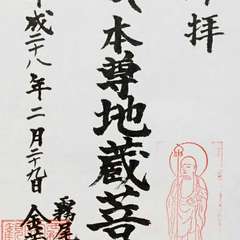 拝
本尊地蔵菩
平成二十八年二月二十九日
霧尾
金